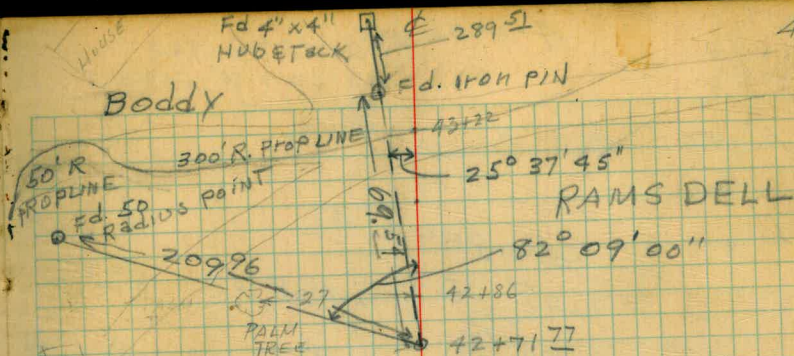 House
Fd 4" x 4"
Hub & Tack
℄
289 51
4
Fd. Iron PIN
Boddy
43+22
300' R. PROP LINE
50' R
PROPLINE
25° 37' 45"
RAMSDELL
Fd. 50
Radius point
69.54
82° 09' 00"
209.96
27
42+86
PALM
TREE
42+71 77